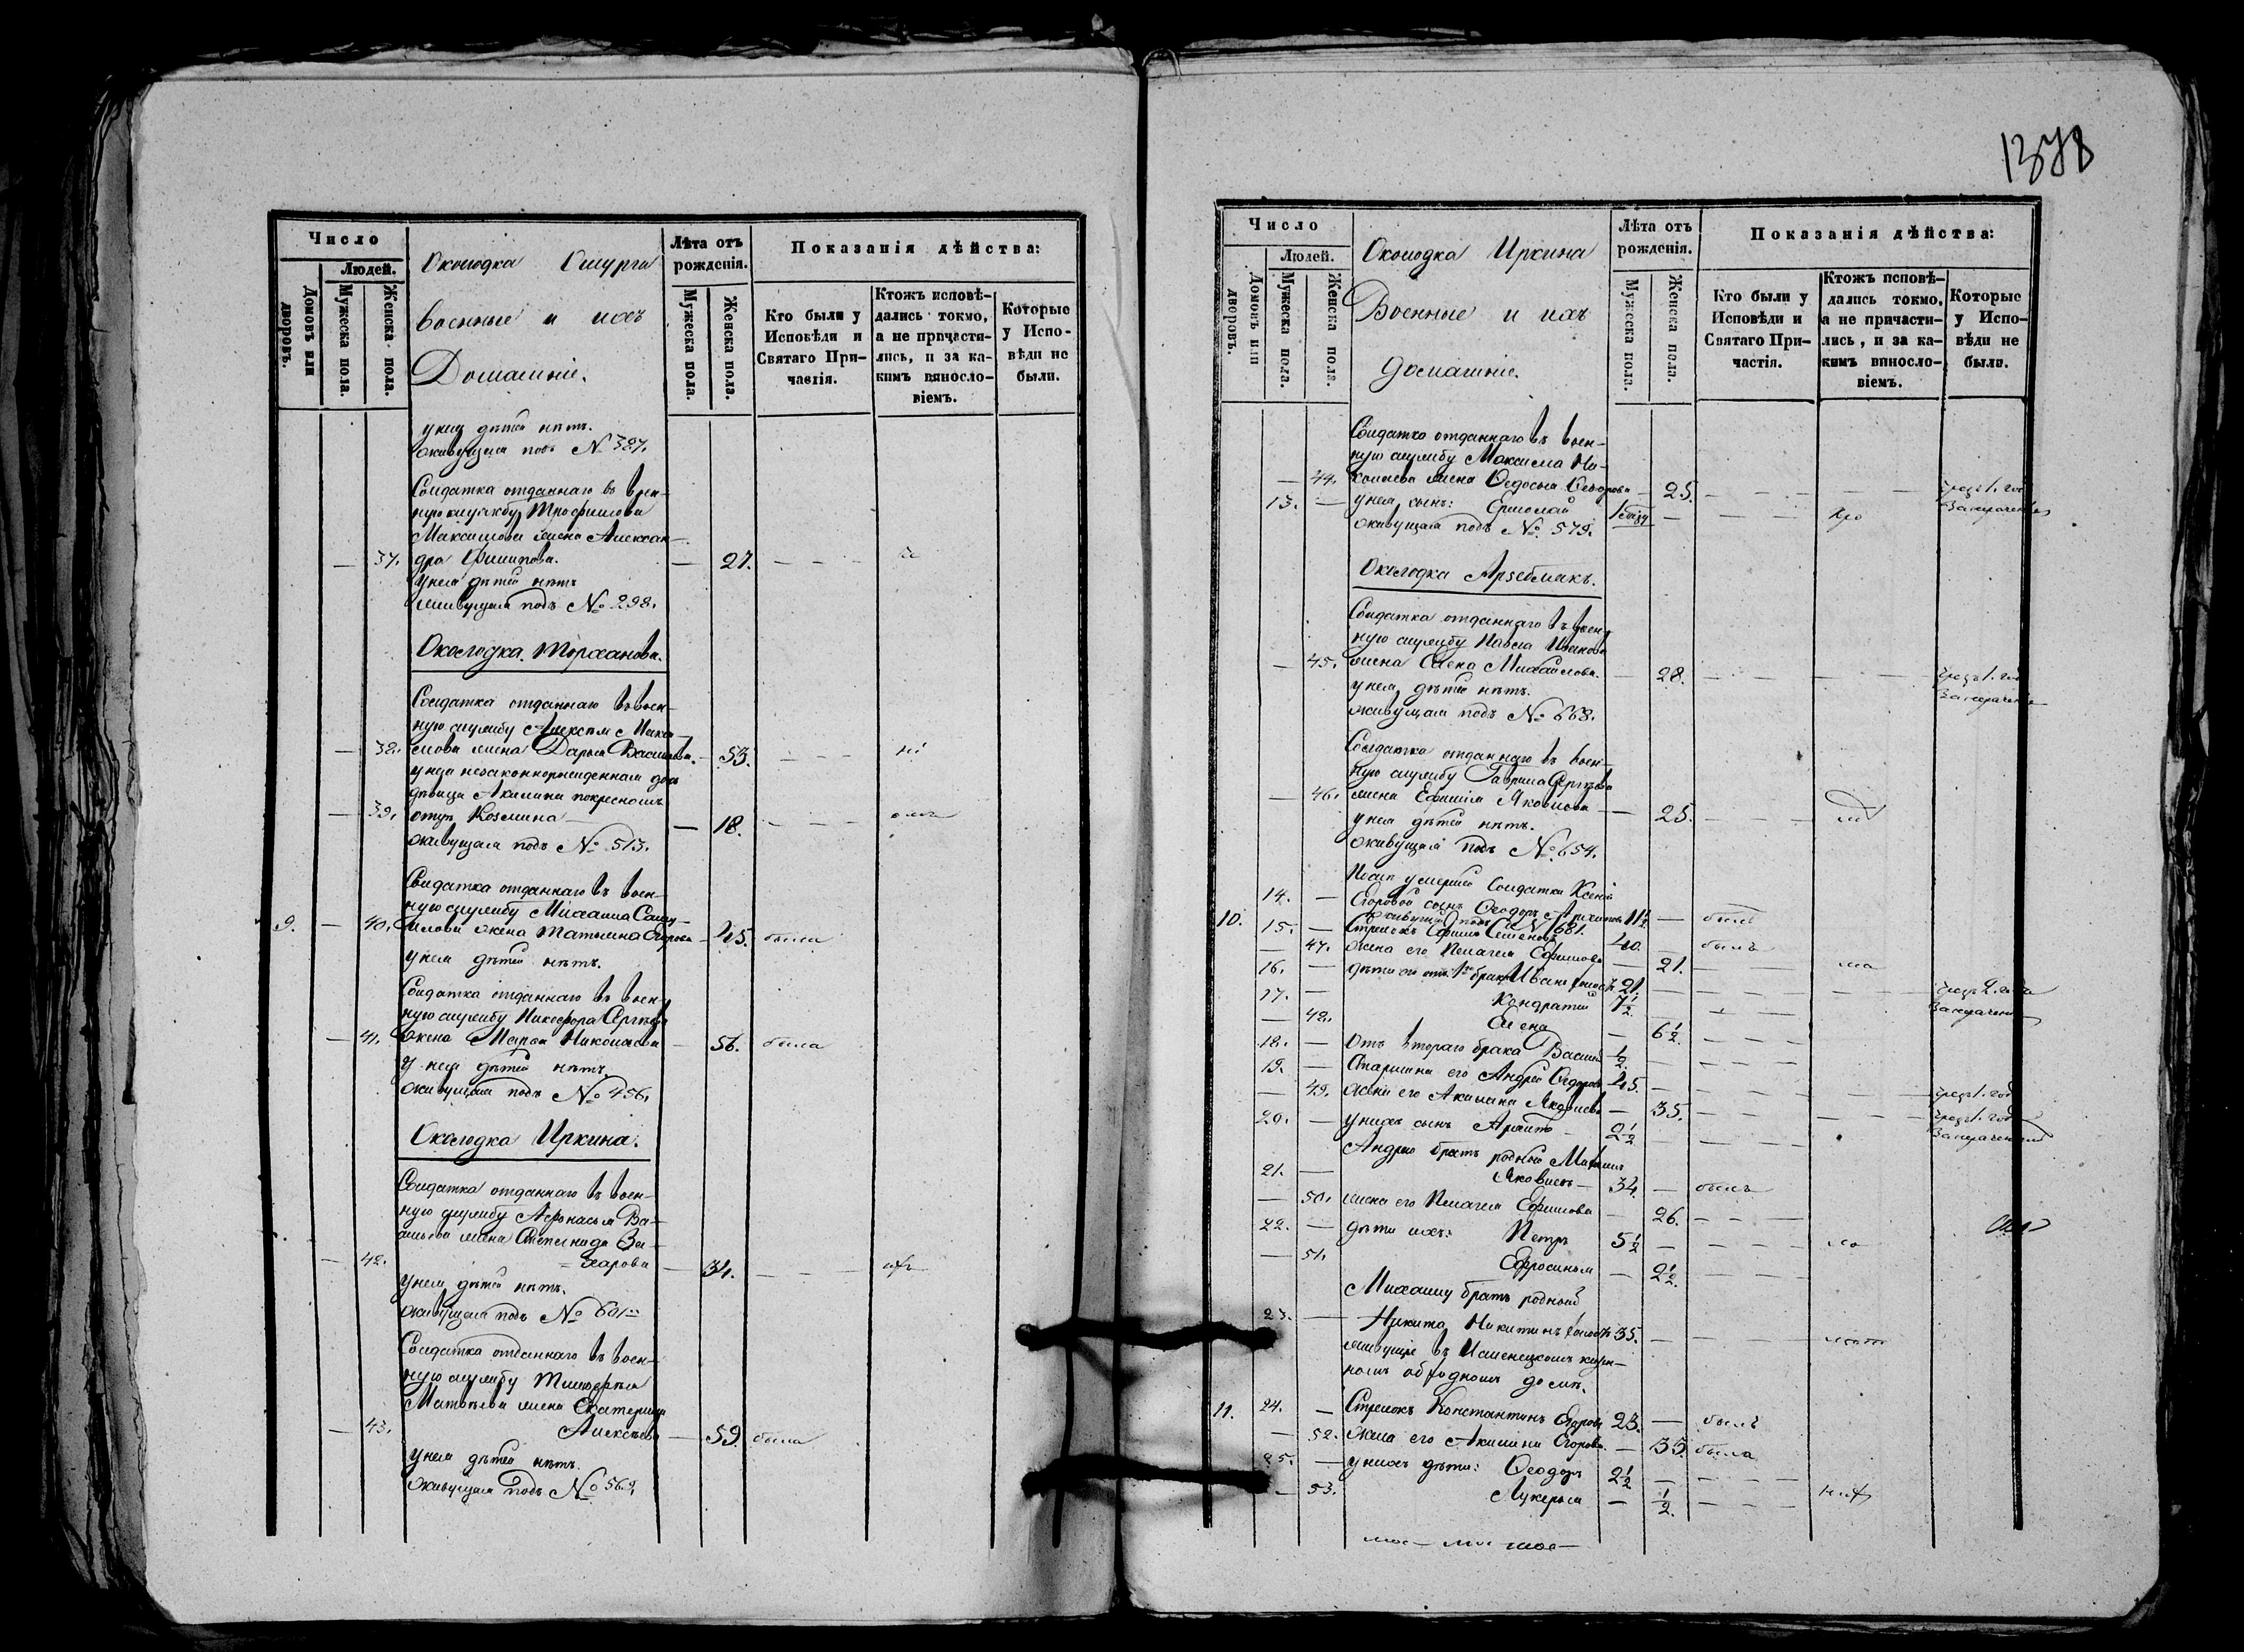 Число
Людей.
Домовъ или дворовъ.
Мужеска пола.
Женска пола.
Околодка Ошурга
военные и ихъ
Домашніе.
Лѣта отъ рожденія.
Мужеска пола.
Женска пола.
Показанія дѣйства:
Кто были у Исповѣди и Святаго Причастія.
Ктожъ исповѣдались токмо, а не причастились, и за какимъ винословіемъ.
Которые у Исповѣди не были.
у нея дѣтей нѣтъ.
живущая подъ № 387.
Солдатка отданнаго въ воен-
ную службу Трофимова
Максимова жена Алексан-
— 37. дра Филипова. — 27. — — —
У нея дѣтей нѣтъ
живущая подъ № 298.
Околодка Торханова.
Солдатка отданнаго въ воен-
ную службу Алексѣя Макси-
— 38. мова жена Дарья Васильева. — 53. — — —
у нея незаконнорожденная дочь
дѣвица Акилина по крестномъ
— 39. отцу Козмина — — 18. — — —
живущая подъ № 513.
Солдатка отданнаго въ воен-
ную службу Михаила Саму-
9. — 40. илова жена Татьяна Егорова — 45. была
у нея дѣтей нѣтъ.
Солдатка отданнаго въ воен-
ную службу Никифора Сергѣева
— 41. жена Марья Николаева — 56. была
У нея дѣтей нѣтъ.
живущая подъ № 456.
Околодка Иркина.
Солдатка отданнаго въ воен-
ную службу Афонасья Ва-
сильева жена Степанида За-
— 42. = харова — 34. — — —
У нея дѣтей нѣтъ.
живущая подъ № 601
Солдатка отданнаго въ воен-
ную службу Тимофея
Матвѣева жена Екатерина
— 43. Алексѣева — 59. была
У нея дѣтей нѣтъ.
живущая подъ № 569.
1378
Число
Людей.
Домовъ или дворовъ.
Мужеска пола.
Женска пола.
Околодка Иркина
Военные и ихъ
домашніе.
Лѣта отъ рожденія.
Мужеска пола.
Женска пола.
Показанія дѣйства:
Кто были у Исповѣди и Святаго Причастія.
Ктожъ исповѣдались токмо, а не причастились, и за какимъ винословіемъ.
Которые у Исповѣди не были.
Солдатка отданнаго въ воен-
ную службу Максима Ни-
— 44. колаева жена Федосья Федорова — 25. — — — — — чрезъ 1. годъ
13. — у нея сынъ: Ермолай — — — — за нераченіе
живущая подъ № 579.
Околодка Арзебмакъ.
Солдатка отданнаго въ воен-
ную службу Павла Иванова
— 45. жена Елена Михайлова. — 28. — — — — чрезъ 1. годъ
у нея дѣтей нѣтъ. за нераченіе
живущая подъ № 668.
Солдатка отданнаго въ воен-
ную службу Гаврила Сергѣева
— 46. жена Ефимія Яковлева — 25. — — —
у нея дѣтей нѣтъ.
живущая подъ № 654.
Послѣ умершей Солдатки Ксеніи
14. — Егоровой сынъ Феодоръ Архиповъ 11½ — былъ
живущій подъ № 681.
10. 15. — Стрелокъ Ефимъ Семеновъ 40. — былъ
— 47. жена его Пелагея Ефимова — 21. — —
16. — дѣти его отъ 1го брака Иванъ холостъ 21. — — — — — чрезъ 2. года
17. — Кондратій 7½ — — — за нераченіе
— 48. Елена — 6½. — — —
18. — Отъ втораго брака Василій ½ — — —
19. — Старшина его Андрей Федоровъ 45. — — — — чрезъ 1. годъ
— 49. жена его Акилина Яковлева — 35. — — — — чрезъ 1. годъ
20. — у нихъ сынъ Архипъ — 2½ — — — за нераченіе
Андрею братъ родной Михаилъ
21. — Яковлевъ — 34. — былъ
— 50. жена его Пелагея Ефимова — 26. — — —
22. — дѣти ихъ: Петръ 5½ — — —
— 51. Ефросинья — 2½. — — —
Михаилу братъ родной
23. — Никита Никитинъ холостъ 35. — — —
живущіе въ
номъ домѣ.
11. 24. — Стрелокъ Константинъ Егоровъ 23. — былъ
— 52. жена его Акилина Егорова — 35. была
25. — у нихъ дѣти: Феодоръ 2½ — — — —
— 53. Лукерья — ½. — — —